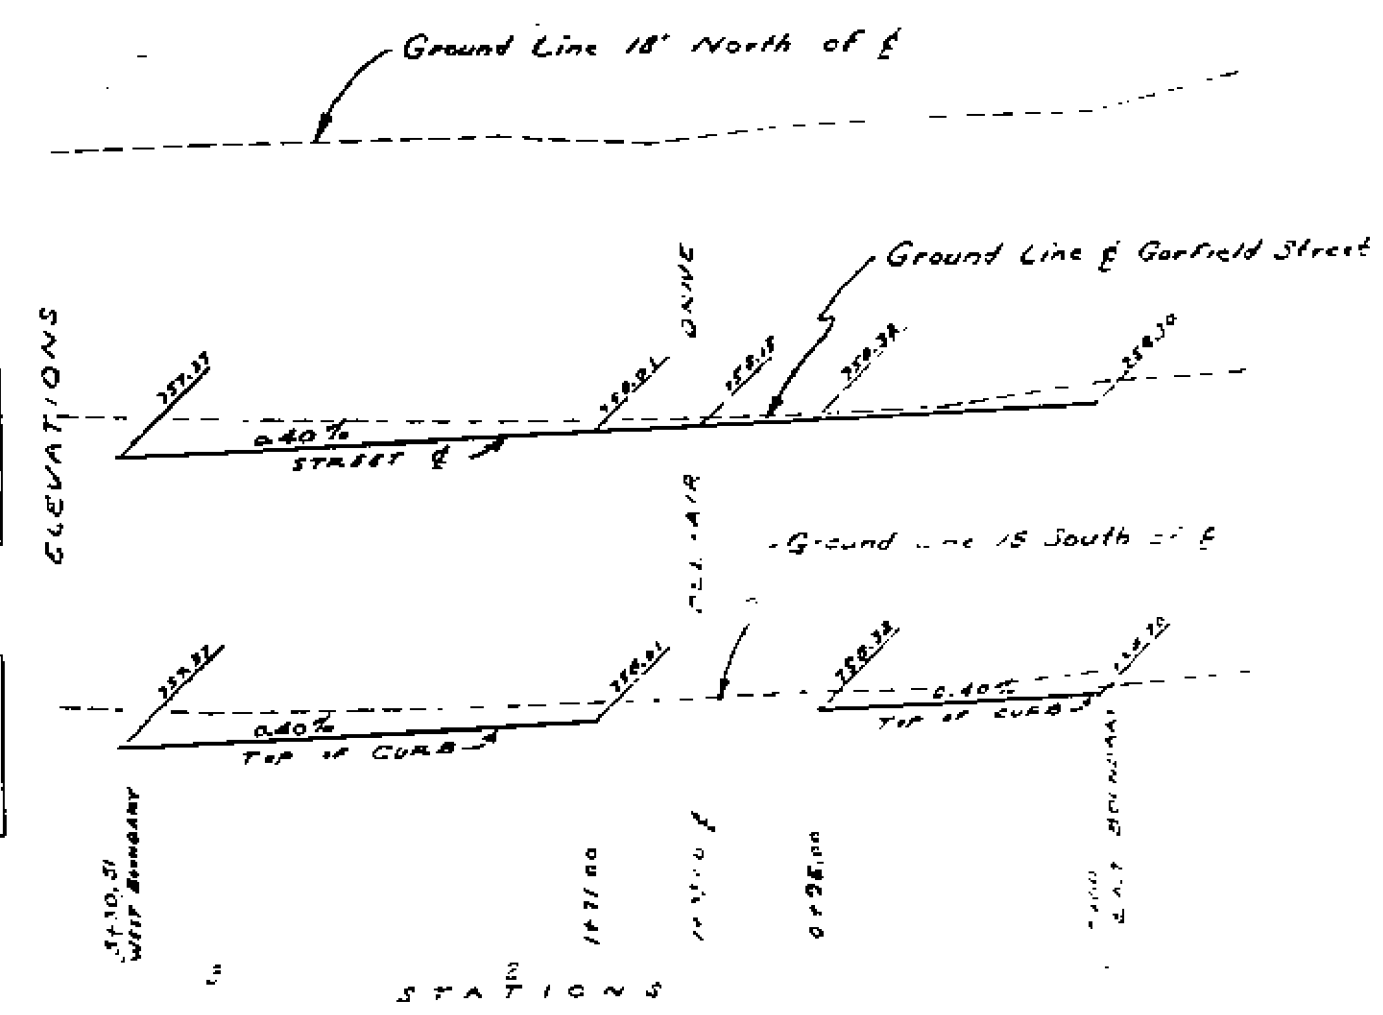 Ground Line 18' North of ℄
Ground Line ℄ Garfield Street
ELEVATIONS
DRIVE
757.37
758.01
758.15
758.38
0.40%
STREET ℄
AIR
Ground 18 South of ℄
757.37
758.01
758.38
0.40%
TOP OF CURB
0.40%
TOP OF CURB
3+30.51
WEST BOUNDARY
1+71.00
0+96.00
EAST BOUNDARY
STATIONS